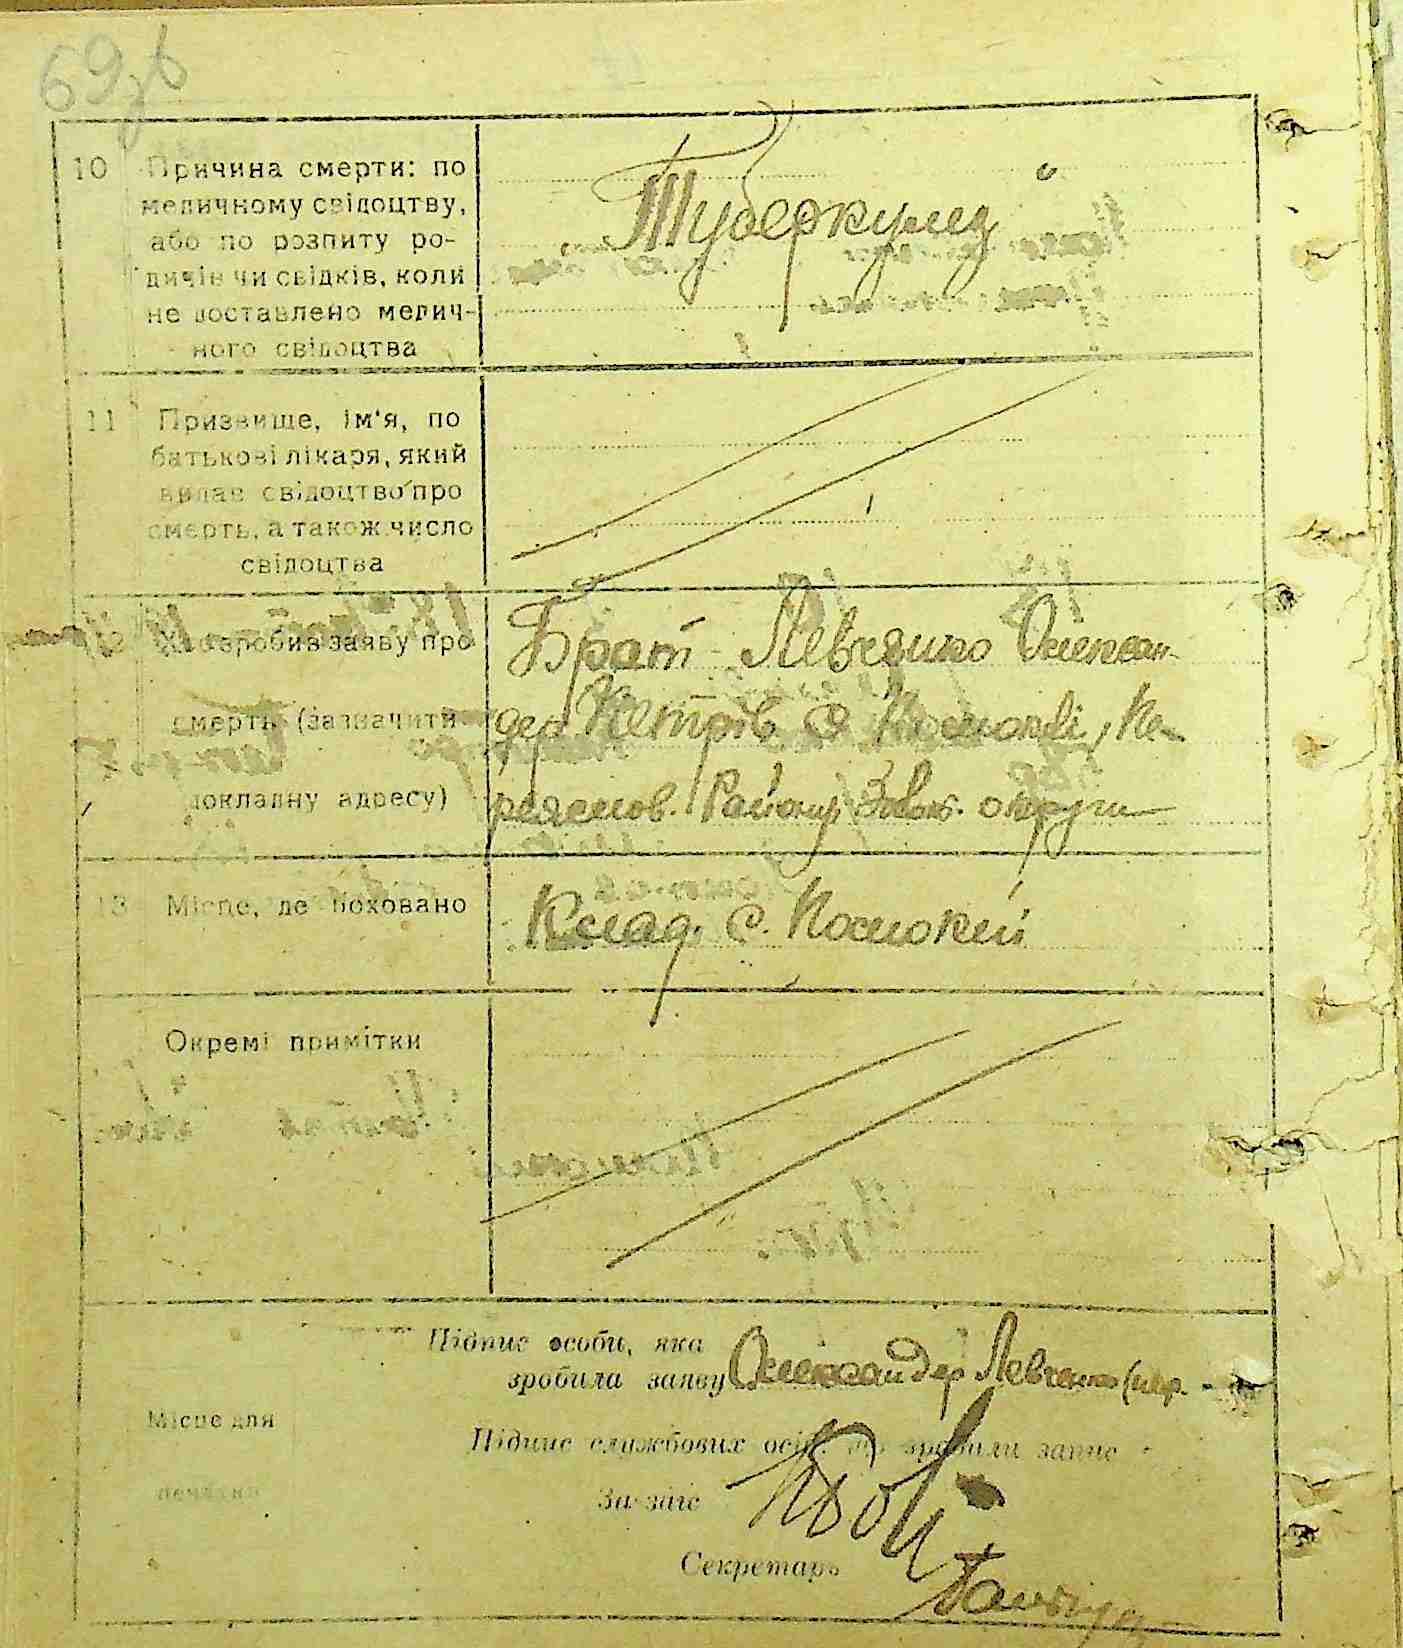 69зв
10 Причина смерти: по
медичному свідоцтву,
або по розпиту ро-
дичів чи свідків, коли
не доставлено медич-
ного свідоцтва
Туберкульоз
11 Призвище, ім'я, по
батькові лікаря, який
видав свідоцтво про
смерть, а також число
свідоцтва
Хто зробив заяву про
смерть (зазначити
докладну адресу)
Брат - Левченко Олексан-
дер Петрів с.
Району округи
13 Місце, де поховано
Клад. с.
Окремі примітки
Підпис особи, яка
зробила заяву Олександер Левченко
Місце для
печатки
Підпис службових осіб, що зробили запис
За загс
Секретарь